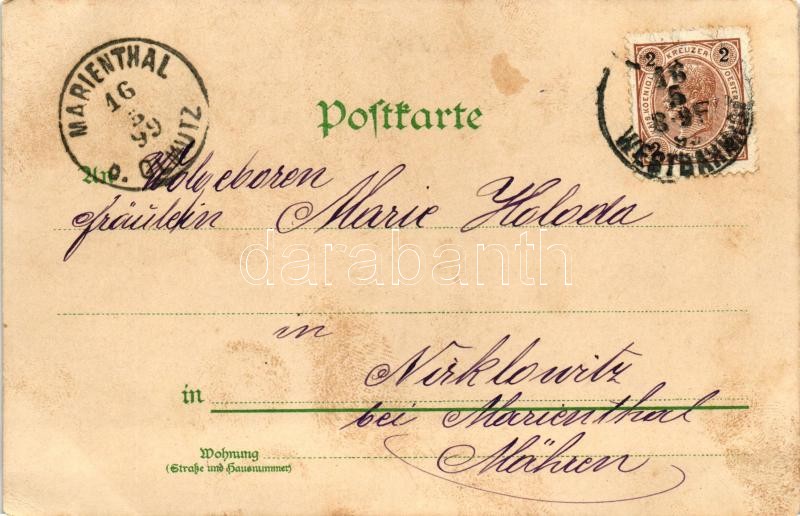 MARIENTHAL
16
5
99
P. OLMUTZ
2 KREUZER 2
16
5
WESTBAHNHOF
Postkarte
An Wolgeboren
fräulein Marie Holoda
darabanth
in
Nirklowitz
in
bei Marienthal
Wohnung
(Straße und Hausnummer)
Mähren